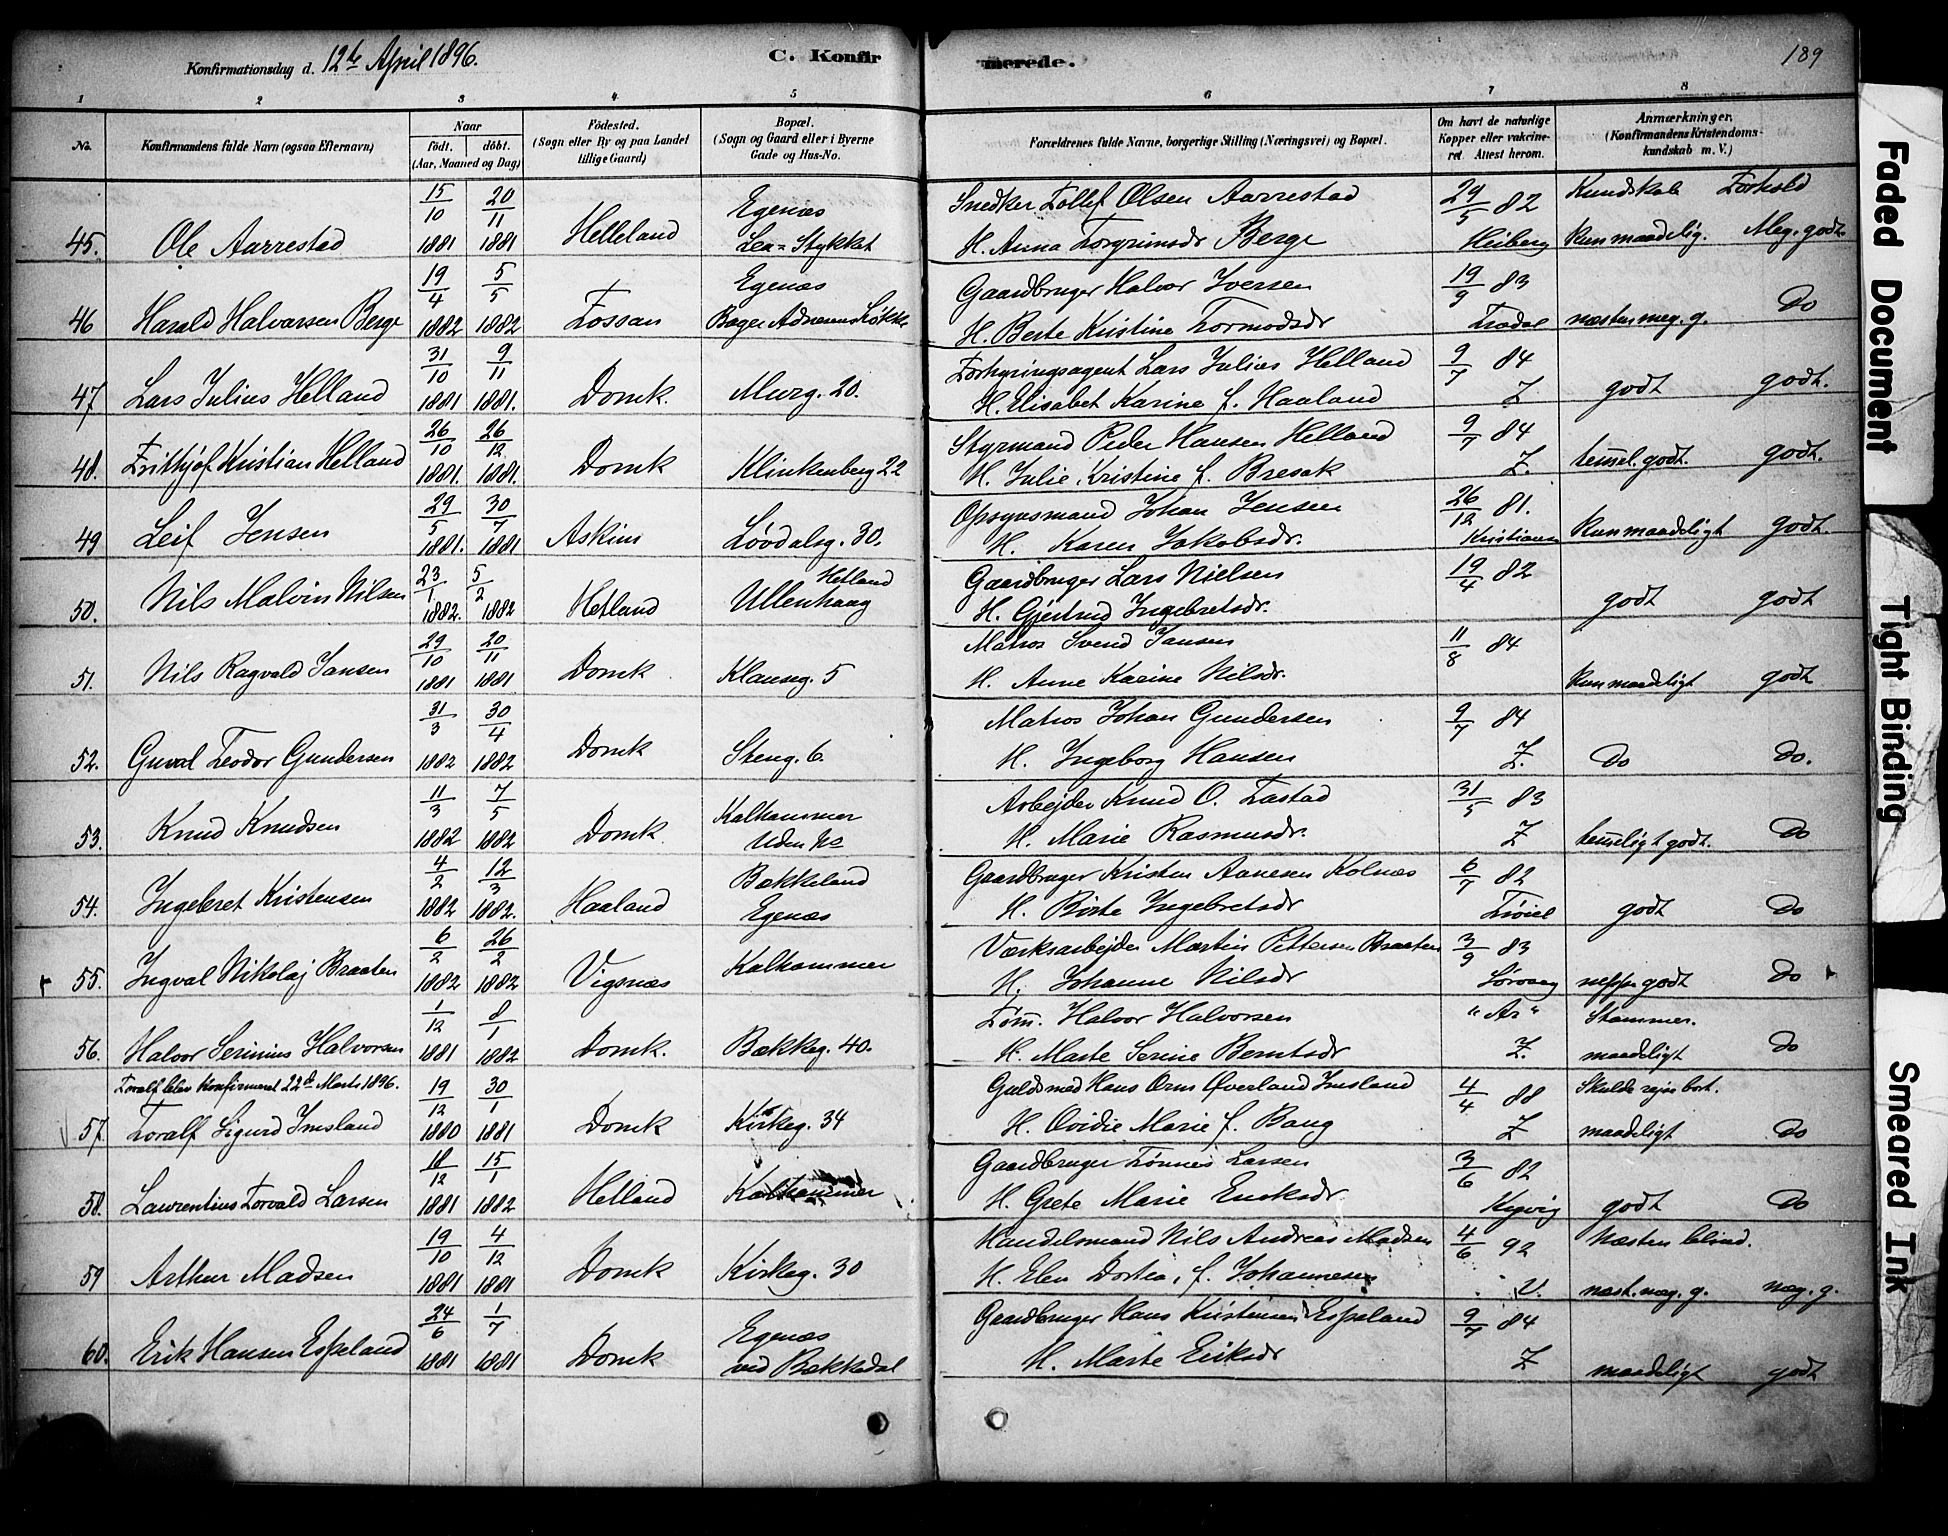 Konfirmationsdag d. 12te April 1896.
C. Konfirmerede.
189
1 2 3 4 5 6 7 8
No.
Konfirmandens fulde Navn (ogsaa Efternavn)
Naar
født. døbt.
(Aar, Maaned og Dag)
Fødested.
(Sogn eller By og paa Landet
tillige Gaard)
Bopæl.
(Sogn og Gaard eller i Byerne
Gade og Hus-No.
Forældrenes fulde Navne, borgerlige Stilling (Næringsvei) og Bopæl.
Om havt de naturlige
Kopper eller vakcine-
ret Attest herom.
Anmærkninger.
(Konfirmandens Kristendoms-
kundskab m. V.)
15/10 20/11 Egenæs Snedker Tollef Olsen Aarrestad 29/5 82 Kundskab Forhold
45. Ole Aarrestad 1881 1881 Helleland Lea=Stykket H. Anna Torgrimsdr Berge Heiberg kun maadelig. Meg. godt.
19/4 5/5 Egenæs Gaardbruger Halvor Iversen 19/9 83
46 Harald Halvarsen Berge 1882 1882 Fossan Bager H. Berte Kristine Tormodsdr næsten meg. g. Do
31/10 9/11 Forhyringsagent Lars Julius Helland 9/7 84
47 Lars Julius Helland 1881 1881. Domk Murg. 20. H. Elisabet Karine f. Haaland Z godt godt.
26/10 26/12 Styrmand Peder Hansen Helland 9/7 84
48. Frithjof Kristian Helland 1881. 1881. Domk Klinkenberg 22 H. Julie Kristine f. Bresak Z. temel. godt. godt.
29/5 30/7 Opsynsmand Johan Jensen 26/12 81.
49 Leif Jensen 1881. 1881 Askim Løvdalsg. 30. H. Karen Jakobsdr. kun maadeligt godt.
23/1 5/2 Hetland Gaardbruger Lars Nielsen 19/4 82
50. Nils Malvin Nilsen 1882. 1882 Hetland Ullenhaag H. Gjertrud Ingebretsdr. godt godt
29/10 20/11 Matros Svend Jansen 11/8 84
51. Nils Ragvald Jansen 1881 1881 Domk Klausg. 5 H. Anne Karine Nilsdr. kun maadeligt godt
31/3 30/4 Matros Johan Gundersen 9/7 84
52. Guval Teodor Gundersen 1882 1882 Domk Steng. 6. H. Ingeborg Hansen Z. Do Do.
11/3 7/5 Kalhammer Arbejder Knud O. Tastad 31/5 83
53. Knud Knudsen 1882 1882 Domk. Uden No H. Marie Rasmusdr. Z temeligt godt. Do
4/2 12/3 Bækkeland Gaardbruger Kristen Aanesen Kolnæs 6/7 82
54. Ingebret Kristensen 1882 1882. Haaland Egenæs H. Birte Ingebretsdr godt Do
6/2 26/2 Værksarbejder Martin Pettersen Braaten 3/9 83
55. Ingval Nikolaj Braaten 1882 1882 Vigsnæs Kalhammer H. Johanne Nilsdr neppe godt Do
1/12 8/1 Tøm. Halvor Halvorsen "Ar" Stammer.
56. Halvor Serinius Halvorsen 1881 1882 Domk. Bækkeg. 40. H. Marte Serine Berntsdr Z. maadeligt Do
Toralf blev konfirmeret 22de Marts 1896. 19/12 30/1 Guldsmed Hans Orm Øverland Imsland 4/4 88 Skulde rejse bort.
57. Toralf Sigurd Imsland 1880 1881 Domk Kirkeg. 34 H. Ovidie Marie f. Bang Z maadeligt Do
18/12 15/1 Gaardbruger Tønnes Larsen 3/6 82
58. Laurentius Torvald Larsen 1881 1882 Hetland Kalhammer H. Grete Marie Eriksdr. godt Do
19/10 4/12 Handelsmand Nils Andreas Madsen 4/6 92 Næsten blind.
59 Arthur Madsen 1881 1881 Domk Kirkeg. 30 H. Elen Dortea, f. Johannesen V. næst. meg. g. meg. g.
24/6 1/7 Egenæs Gaardbruger Hans Kristensen Espeland 9/7 84
60. Erik Hansen Espeland 1881 1881 Domk ved Bækkedal H. Marte Eriksdr Z maadeligt godt
Faded Document
Tight Binding
Smeared Ink